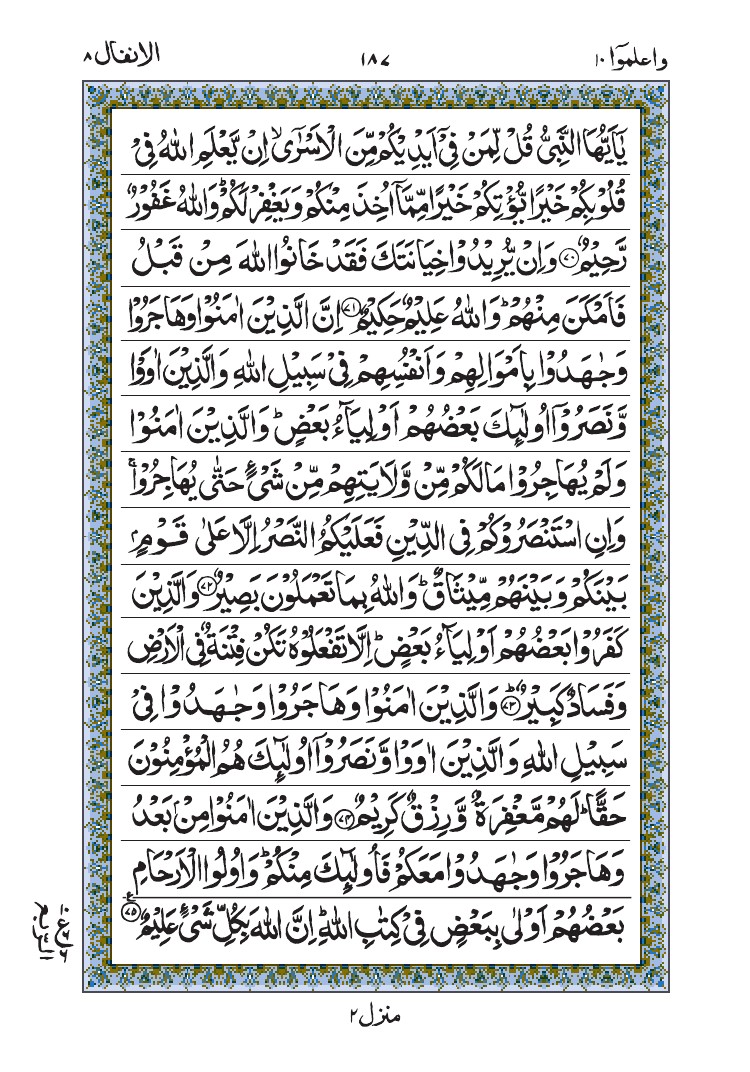 الانفال ٨
١٨٧
واعلموۤا ١٠
يٰۤاَيُّهَا النَّبِيُّ قُلْ لِّمَنْ فِيْۤ اَيْدِيْكُمْ مِّنَ الْاَسْرٰۤى ۙ اِنْ يَّعْلَمِ اللّٰهُ فِيْ
قُلُوْبِكُمْ خَيْرًا يُّؤْتِكُمْ خَيْرًا مِّمَّاۤ اُخِذَ مِنْكُمْ وَيَغْفِرْ لَكُمْ ؕ وَاللّٰهُ غَفُوْرٌ
رَّحِيْمٌ ﴿٧٠﴾ وَاِنْ يُّرِيْدُوْا خِيَانَتَكَ فَقَدْ خَانُوا اللّٰهَ مِنْ قَبْلُ
فَاَمْكَنَ مِنْهُمْ ؕ وَاللّٰهُ عَلِيْمٌ حَكِيْمٌ ﴿٧١﴾ اِنَّ الَّذِيْنَ اٰمَنُوْا وَهَاجَرُوْا
وَجٰهَدُوْا بِاَمْوَالِهِمْ وَاَنْفُسِهِمْ فِيْ سَبِيْلِ اللّٰهِ وَالَّذِيْنَ اٰوَوْا
وَّنَصَرُوْۤا اُولٰٓئِكَ بَعْضُهُمْ اَوْلِيَآءُ بَعْضٍ ؕ وَالَّذِيْنَ اٰمَنُوْا
وَلَمْ يُهَاجِرُوْا مَا لَكُمْ مِّنْ وَّلَايَتِهِمْ مِّنْ شَيْءٍ حَتّٰى يُهَاجِرُوْا ۚ
وَاِنِ اسْتَنْصَرُوْكُمْ فِي الدِّيْنِ فَعَلَيْكُمُ النَّصْرُ اِلَّا عَلٰى قَوْمٍۭ
بَيْنَكُمْ وَبَيْنَهُمْ مِّيْثَاقٌ ؕ وَاللّٰهُ بِمَا تَعْمَلُوْنَ بَصِيْرٌ ﴿٧٢﴾ وَالَّذِيْنَ
كَفَرُوْا بَعْضُهُمْ اَوْلِيَآءُ بَعْضٍ ؕ اِلَّا تَفْعَلُوْهُ تَكُنْ فِتْنَةٌ فِي الْاَرْضِ
وَفَسَادٌ كَبِيْرٌ ﴿٧٣﴾ؕ وَالَّذِيْنَ اٰمَنُوْا وَهَاجَرُوْا وَجٰهَدُوْا فِيْ
سَبِيْلِ اللّٰهِ وَالَّذِيْنَ اٰوَوْا وَّنَصَرُوْۤا اُولٰٓئِكَ هُمُ الْمُؤْمِنُوْنَ
حَقًّا ؕ لَهُمْ مَّغْفِرَةٌ وَّرِزْقٌ كَرِيْمٌ ﴿٧٤﴾ وَالَّذِيْنَ اٰمَنُوْا مِنْۢ بَعْدُ
وَهَاجَرُوْا وَجٰهَدُوْا مَعَكُمْ فَاُولٰٓئِكَ مِنْكُمْ ؕ وَاُولُوا الْاَرْحَامِ
بَعْضُهُمْ اَوْلٰى بِبَعْضٍ فِيْ كِتٰبِ اللّٰهِ ؕ اِنَّ اللّٰهَ بِكُلِّ شَيْءٍ عَلِيْمٌ ﴿٧٥﴾
منزل ٢